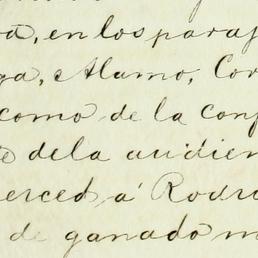 en los paraj
ga, Alamo, Cor
como de la conf
de la audien
erced á Rodr
de ganado m